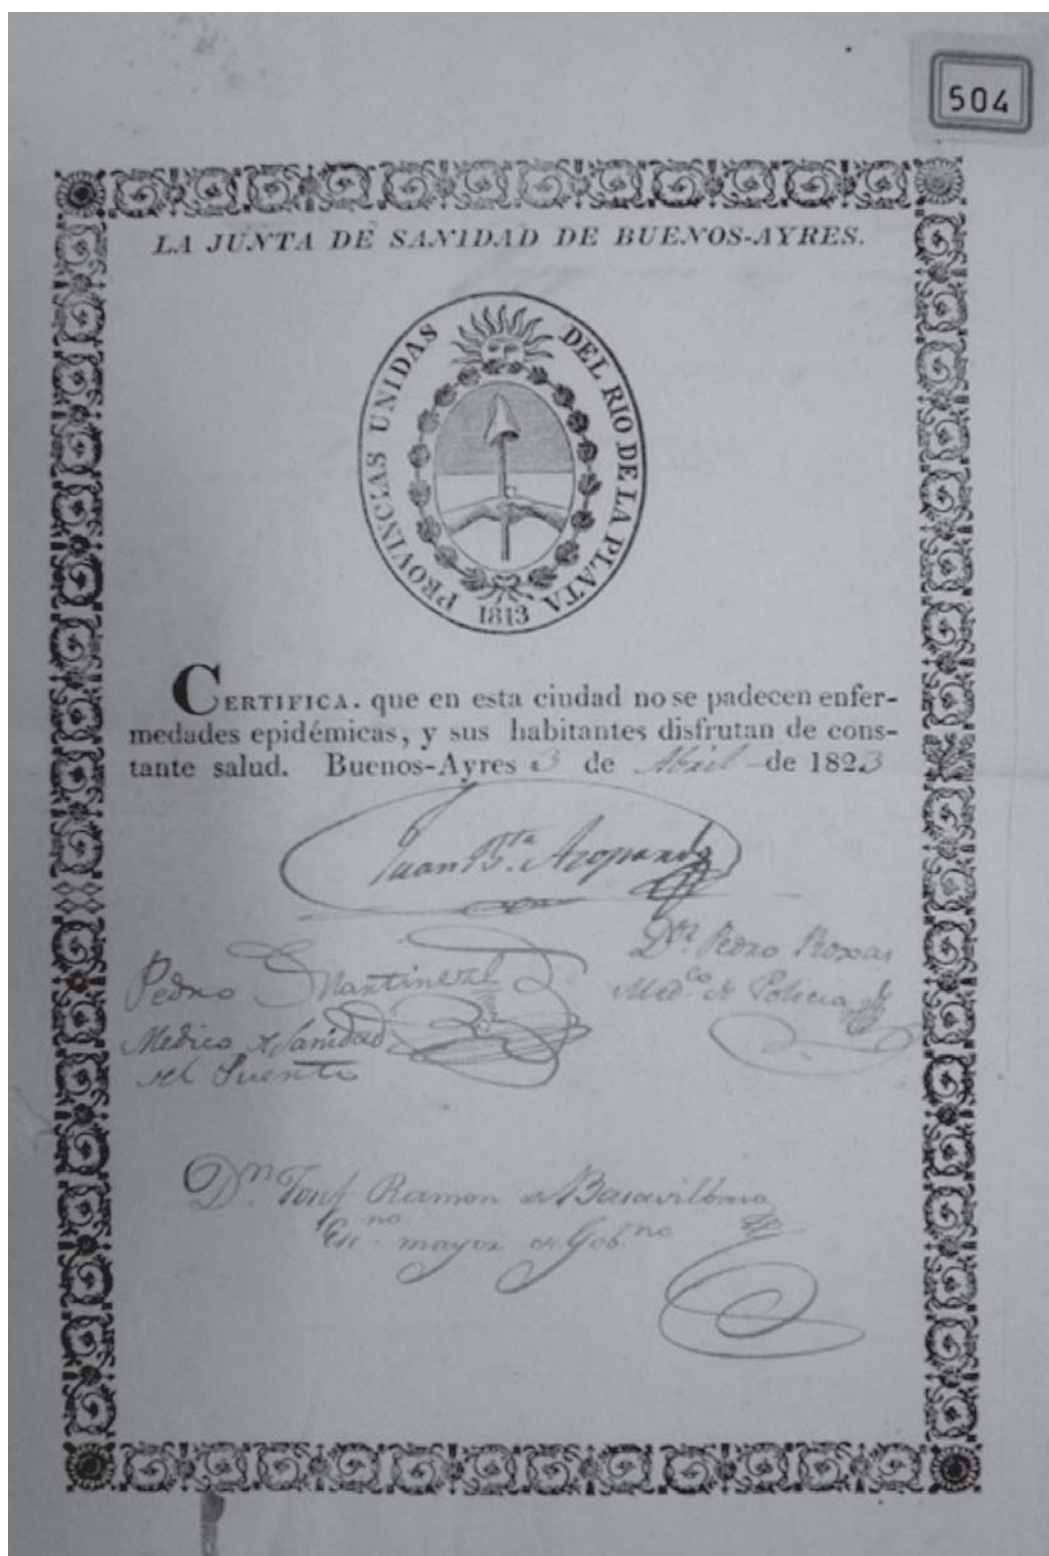 504
LA JUNTA DE SANIDAD DE BUENOS-AYRES.
PROVINCIAS UNIDAS DEL RIO DE LA PLATA
1813
CERTIFICA. que en esta ciudad no se padecen enfer-
medades epidémicas, y sus habitantes disfrutan de cons-
tante salud. Buenos-Ayres 3 de Abril de 1823
Juan Bta. Azopardo
Dr. Pedro Roxas
Pedro Martinez
Medco. de Policia
Medico de Sanidad
del Puerto
Dn. Josef Ramon de Basavilbaso
Esno. mayor de Gobno